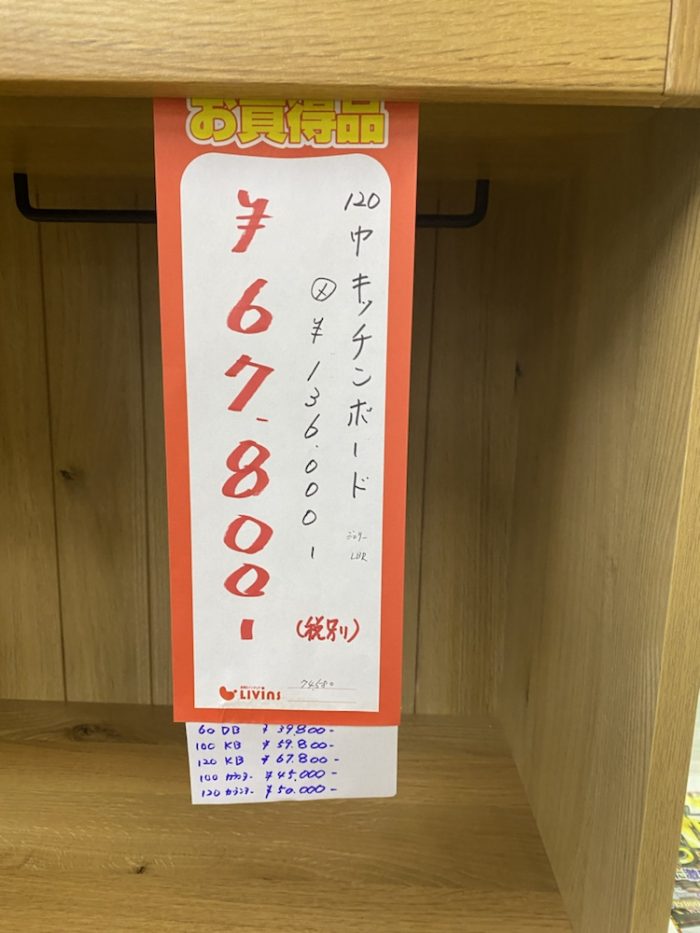 お買得品
120巾キッチンボード
LBR
㋱¥136.000-
¥67.800-
(税別)
LIVINS
74580
60 DB ¥39.800-
100 KB ¥59.800-
120 KB ¥67.800-
100 カウンター ¥45.000-
120 カウンター ¥50.000-